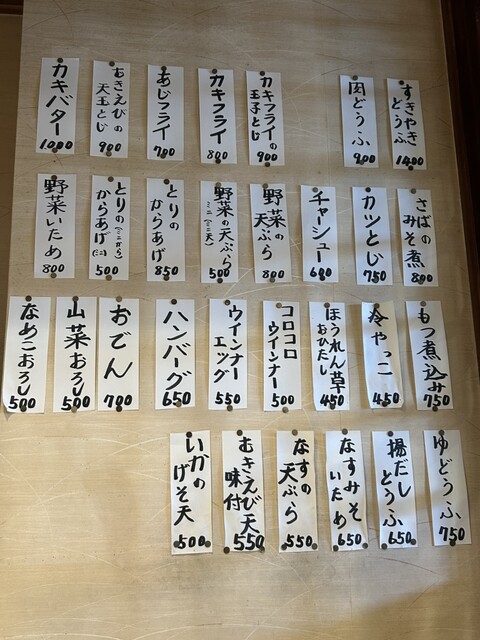 すきやき
どうふ
1400
肉どうふ
900
カキフライの
玉子とじ
900
カキフライ
800
あじフライ
700
むきえびの
天玉とじ
900
カキバター
1000
さばの
みそ煮
800
カツとじ
750
チャーシュー
600
野菜の
天ぷら
800
野菜の天ぷら
ミニ(ミニ天)
500
とりの
からあげ
850
とりの(ミニから)
からあげ(ミニ)
500
野菜いため
800
もつ煮込み
750
冷やっこ
450
ほうれん草
おひたし
450
コロコロ
ウインナー
500
ウインナー
エッグ
550
ハンバーグ
650
おでん
700
山菜おろし
500
なめこおろし
500
ゆどうふ
750
揚だし
とうふ
650
なすみそ
いため
650
なすの
天ぷら
550
むきえび天
味付
550
いかの
げそ天
500